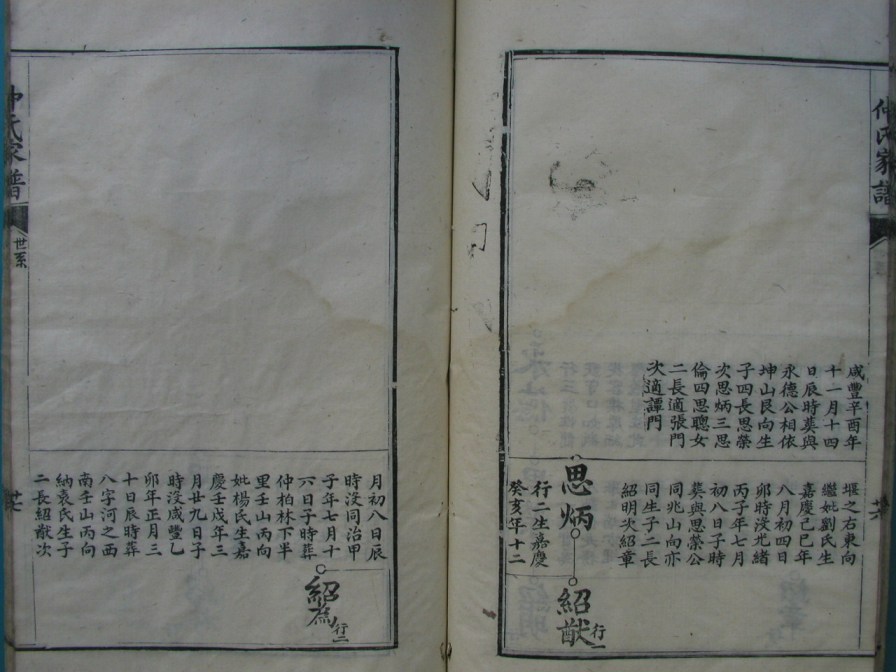 仲氏家譜
咸豐辛酉年
十一月十四
日辰時葬與
永德公相依
坤山艮向生
子四長思榮
次思炳三思
倫四思聰女
二長適張門
次適譚門
堰之右東向
繼妣劉氏生
嘉慶己巳年
八月初四日
卯時沒光緒
丙子年七月
初八日子時
葬與思榮公
同兆山向亦
同生子二長
紹明次紹章
思炳
行二生嘉慶
癸亥年十二
紹猷
行一
仲氏家譜
世系
月初八日辰
時沒同治甲
子年七月十
六日子時葬
仲柏林下半
里壬山丙向
妣楊氏生嘉
慶壬戌年三
月廿九日子
時沒咸豐乙
卯年正月三
十日辰時葬
八字河之西
南壬山丙向
納袁氏生子
二長紹猷次
紹為
行二